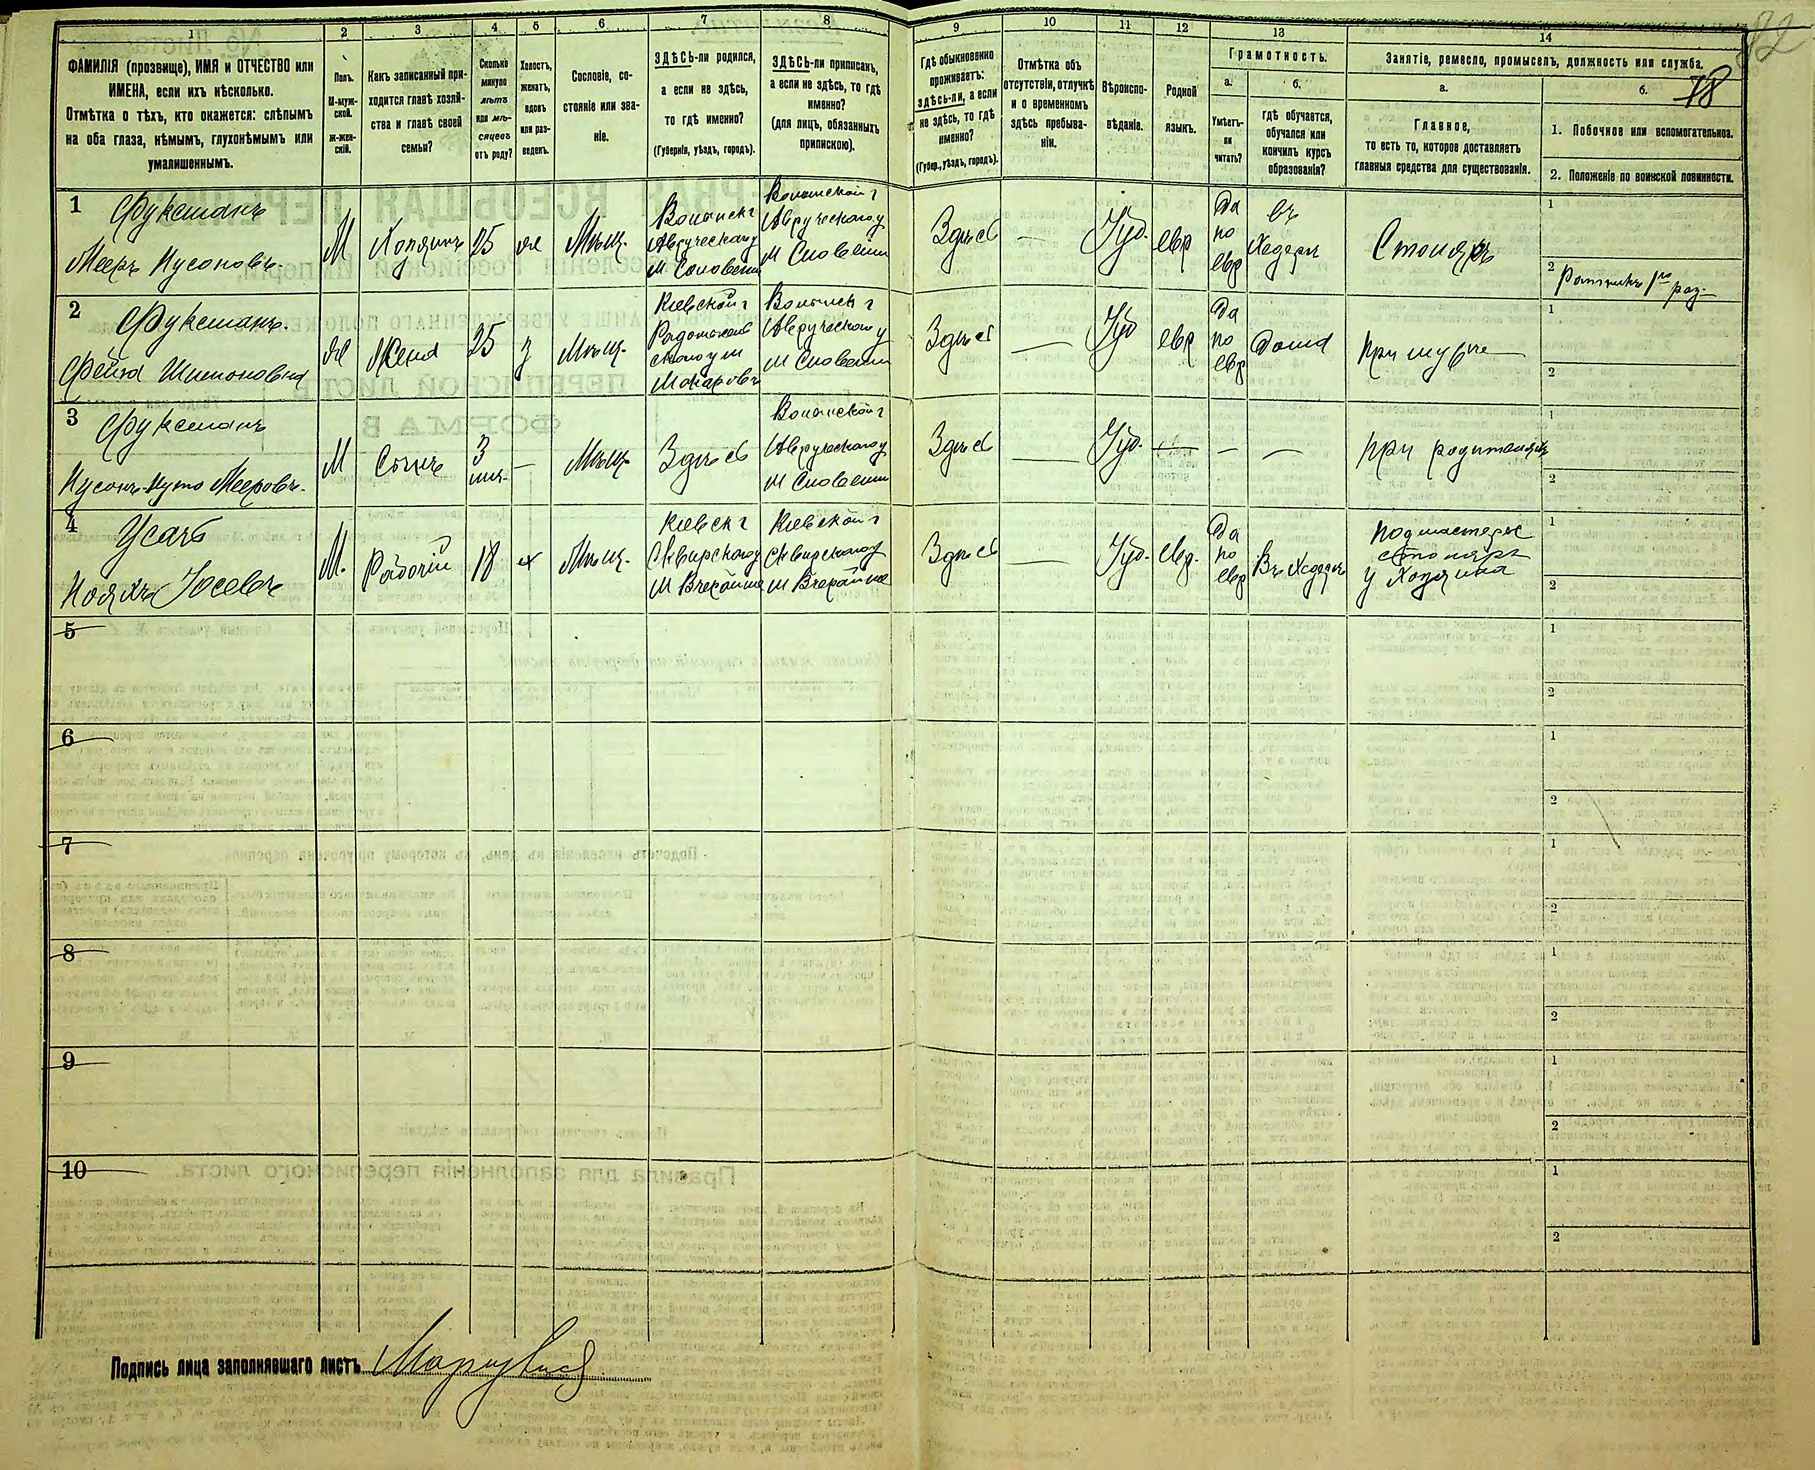 82
18
1 2 3 4 5 6 7 8 9 10 11 12 13 14
ФАМИЛІЯ (прозвище), ИМЯ и ОТЧЕСТВО или
ИМЕНА, если ихъ нѣсколько.
Отмѣтка о тѣхъ, кто окажется: слѣпымъ
на оба глаза, нѣмымъ, глухонѣмымъ или
умалишеннымъ.
Полъ.
М-муж-
ской.
Ж-жен-
скій.
Какъ записанный при-
ходится главѣ хозяй-
ства и главѣ своей
семьи?
Сколько
минуло
лѣтъ
или мѣ-
сяцевъ
отъ роду?
Холостъ,
женатъ,
вдовъ
или раз-
веденъ.
Сословіе, со-
стояніе или зва-
ніе.
ЗДѢСЬ-ли родился,
а если не здѣсь,
то гдѣ именно?
(Губернія, уѣздъ, городъ).
ЗДѢСЬ-ли приписанъ,
а если не здѣсь, то гдѣ
именно?
(для лицъ, обязанныхъ
припискою).
Гдѣ обыкновенно
проживаетъ:
здѣсь-ли, а если
не здѣсь, то гдѣ
именно?
(Губер., уѣздъ, городъ).
Отмѣтка объ
отсутствіи, отлучкѣ
и о временномъ
здѣсь пребыва-
ніи.
Вѣроиспо-
вѣданіе.
Родной
языкъ.
Грамотность.
а.
Умѣетъ-
ли
читать?
б.
гдѣ обучается,
обучался или
кончилъ курсъ
образованія?
Занятіе, ремесло, промыселъ, должность или служба.
а.
Главное,
то есть то, которое доставляетъ
главныя средства для существованія.
б.
1. Побочное или вспомогательное.
2. Положеніе по воинской повинности.
1 Фуксманъ
Мееръ Нусоновъ.
М
Хозяинъ
25
же
Мѣщ.
Волынск г
Авруческаго у
м Словечни
Волынской г
Авруческаго у
м Словечни
Здѣсь
—
Іуд.
евр
Да
по
евр
въ
Хедерѣ
Столяръ
1
2 Ратникъ 1го раз.
2 Фуксманъ.
Фейга Шимоновна
Же
Жена
25
з
Мѣщ.
Кіевской г
Радомысль
скаго у м
Макаровъ
Волынск г
Авруческаго у
м Словечни
Здѣсь
—
Іуд
евр
Да
по
евр
Дома
При мужѣ
1
2
3 Фуксманъ
Нусонъ-Нута Мееровъ.
М
Сынъ
3
мѣс.
—
Мѣщ.
Здѣсь
Волынской г
Авруческаго у
м Словечни
Здѣсь
—
Іуд.
—
—
—
при родителяхъ
1
2
4 Усачъ
Іосевъ
М.
Рабочій
18
х
Мѣщ.
Кіевск г
Сквирскаго у
м Вчерайше
Кіевской г
Сквирскаго у
м Вчерайше
Здѣсь
—
Іуд.
евр.
Да
по
евр
Въ Хедерѣ
Подмастерье
столяра
у Хозяина
1
2
5
1
2
6
1
2
7
1
2
8
1
2
9
1
2
10
1
2
Подпись лица заполнявшаго листъ